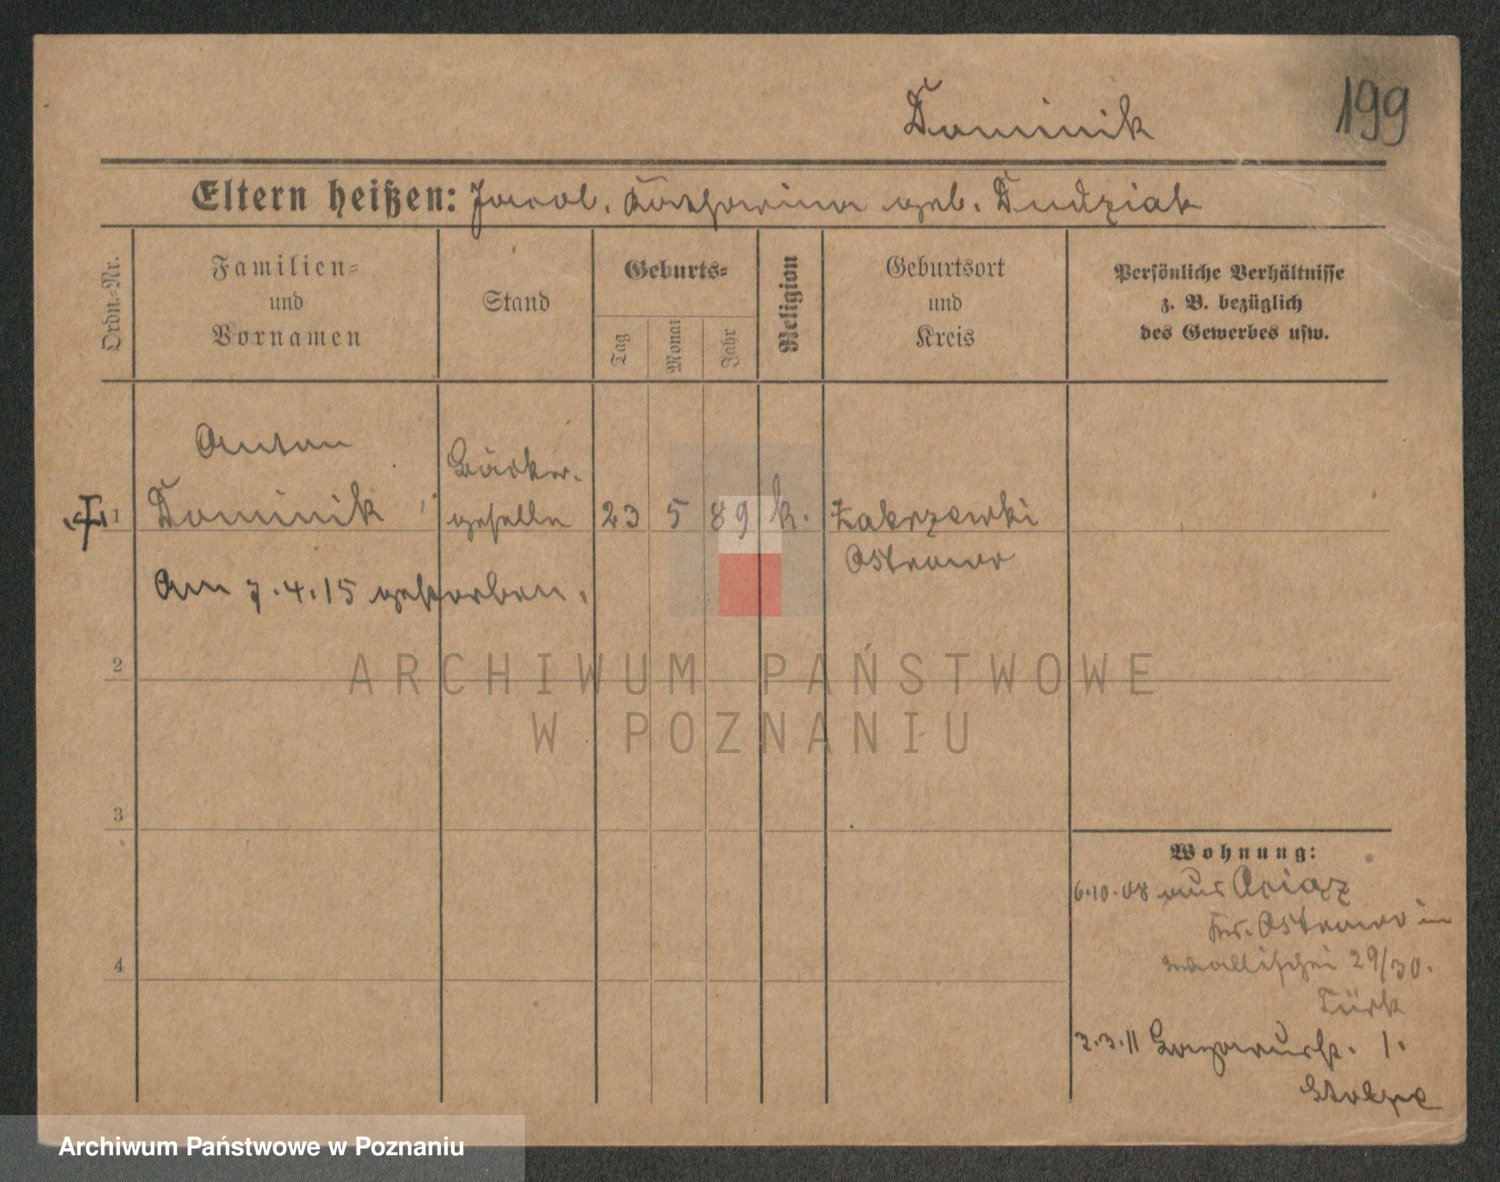 Dominik
199
Eltern heißen: Jacob, Katharina geb. Dudziak
Ordn.-Nr.
Familien-
und
Vornamen
Stand
Geburts-
Tag
Monat
Jahr
Religion
Geburtsort
und
Kreis
Persönliche Verhältnisse
z. B. bezüglich
des Gewerbes usw.
Anton
Bäcker-
1 Dominik geselle 23 5 89 k. Zakrzewki
Ostrowo
Am 7.4.15 gestorben.
2
3
4
Wohnung:
6.10.08 aus
Kr. Ostrowo in
Wallischei 29/30.
Türk
3.11 1.
ARCHIWUM PAŃSTWOWE
W POZNANIU
Archiwum Państwowe w Poznaniu